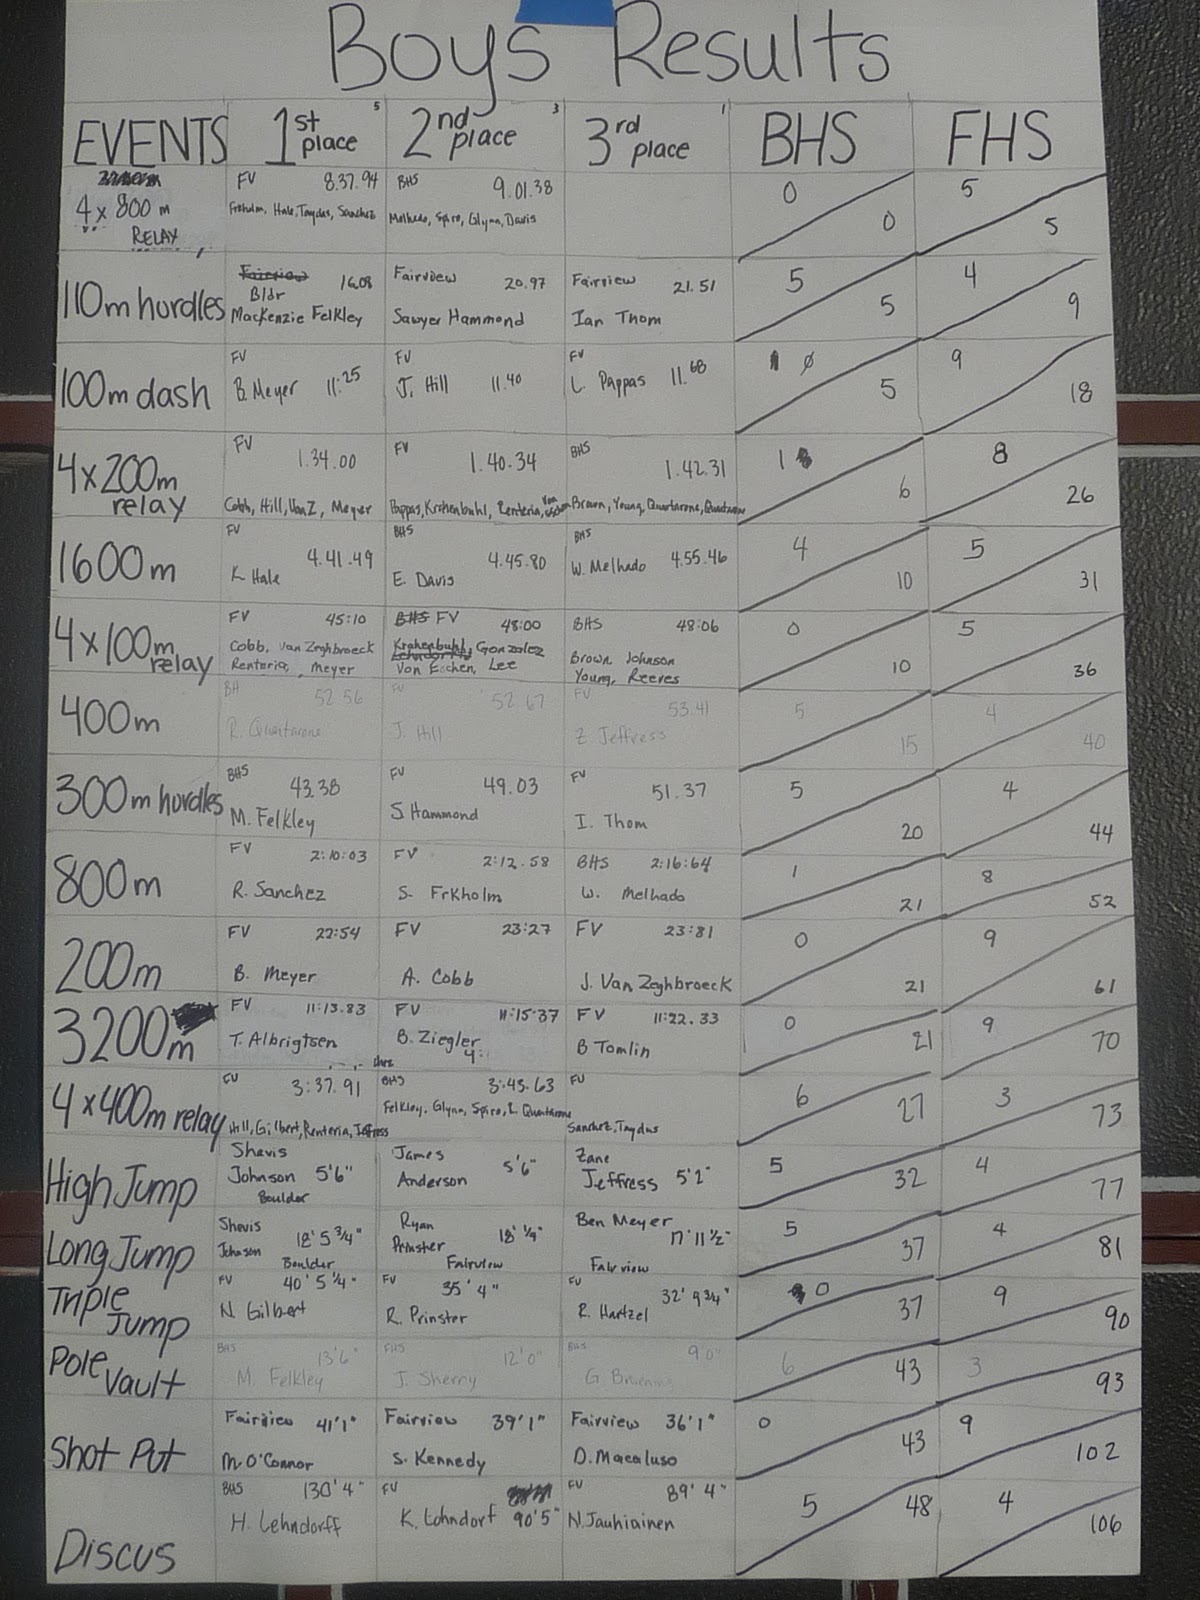 Boys Results
EVENTS 1st place 5 2nd place 3 3rd place 1 BHS FHS
4 x 800 m RELAY FV 8.37.94 BHS 9.01.38 0 0 5 5
Hale, Taydus, Sanchez Melhado, Spiro, Glynn, Davis
110m hurdles Fairview Bldr 16.08 Fairview 20.97 Fairview 21.51 5 5 4 9
Mackenzie Felkley Sawyer Hammond Ian Thom
100m dash FV FV FV 0 5 9 18
B. Meyer 11:25 J. Hill 11.40 L. Pappas 11.68
4x200m relay FV 1.34.00 FV 1.40.34 BHS 1.42.31 1 6 8 26
Cobb, Hill, VanZ, Meyer Pappas, Krahenbuhl, Renteria, Brown, Young, Quartarone, Quartarone
1600m FV 4.41.49 BHS 4.45.80 BHS 4.55.46 4 10 5 31
K. Hale E. Davis W. Melhado
4x100m relay FV 45:10 BHS FV 48:00 BHS 48:06 0 10 5 36
Cobb, Van Zeghbroeck Krahenbuhl, Gonzalez Brown, Johnson
Renteria, Meyer Von Eschen, Lee Young, Reeves
400m BH 52 56 FV 52.67 FV 53.41 5 15 4 40
R. Quartarone J. Hill Z. Jeffress
300m hurdles BHS 43.38 FV 49.03 FV 51.37 5 20 4 44
M. Felkley S Hammond I. Thom
800m FV 2:10:03 FV 2:12.58 BHS 2:16:64 1 21 8 52
R. Sanchez S. Frkholm W. Melhado
200m FV 22:54 FV 23:27 FV 23:81 0 21 9 61
B. Meyer A. Cobb J. Van Zeghbroeck
3200m FV 11:13.83 FV 11:15.37 FV 11:22.33 0 21 9 70
T. Albrigtsen B. Ziegler B Tomlin
4:
4x400m relay FV 3:37.91 BHS 3:45.63 FV 6 27 3 73
Hill, Gilbert, Renteria, Jeffress Felkley, Glynn, Spiro, R. Quartarone Sanchez, Taydus
High Jump Shavis Johnson 5'6" Boulder James Anderson 5'6" Zane Jeffress 5'2" 5 32 4 77
Long Jump Shavis Johnson 18' 5 3/4" Boulder Ryan Prinster 18' 1/4" Fairview Ben Meyer 17' 11 1/2" Fairview 5 37 4 81
Triple Jump FV 40' 5 1/4" FV 35' 4" FV 32' 9 3/4" 0 37 9 90
N. Gilbert R. Prinster R. Hartzel
Pole Vault BHS 13'6" FHS 12'0" BHS 9'0" 6 43 3 93
M. Felkley J. Sherry G.
Shot Put Fairview 41'1" Fairview 39'1" Fairview 36'1" 0 43 9 102
M. O'Connor S. Kennedy D. Macaluso
Discus BHS 130' 4" FV 90'5" FV 89' 4" 5 48 4 106
H. Lehndorff K. Lohndorf N. Jauhiainen